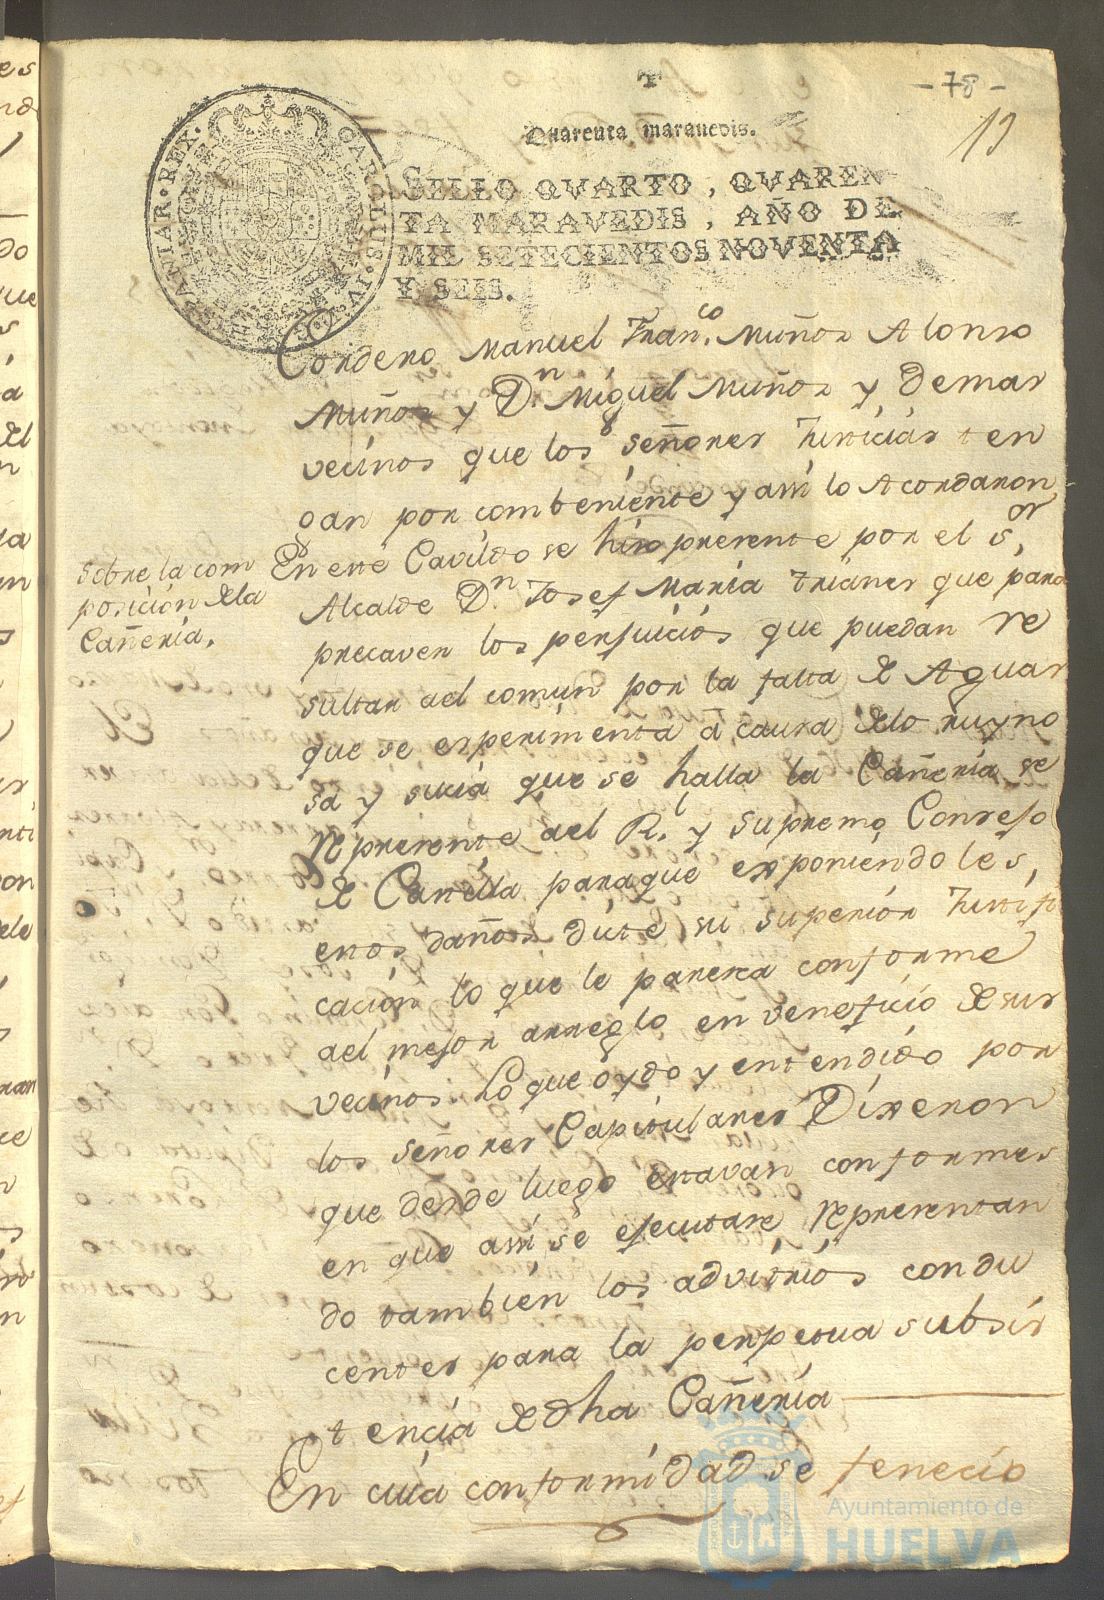 - 78 -
19
Quarenta maravedis.
SELLO QVARTO, QVAREN
TA MARAVEDIS, AÑO DE
MIL SETECIENTOS NOVENTA
Y SEIS.
HISPANIAR. REX.
Cordero Manuel Fran.co Muñoz Alonso
Muñoz y D.n Miguel Muñoz y demas
vecinos que los señores Justicias ten
gan por combeniente y assi lo Acordaron
Sobre la com
posicion dela
Cañeria.
En este Cavildo se hiso presente por el s.or
Alcalde D.n Josef Maria Trianes que para
precaver los perjuicios que puedan re
sultar ael comun por la falta de Aguas
que se esperimenta â causa delo ruyno
sa y sucia que se halla la Cañeria se
represente ael R.l y supremo Consejo
de Castilla paraque exponiendoles,
estos daños dicte su superior Justifi
cacion lo que le paresca conforme
ael mejor arreglo en veneficio de sus
vecinos. Lo que oydo y entendido por
los señores Capitulares Dixeron
que desde luego estavan conformes
en que assi se ejecutase representan
do tambien los advitrios condu
centes para la perpetua subsis
tencia de dha Cañeria
En cuia conformidad se fenecio
Ayuntamiento de
HUELVA